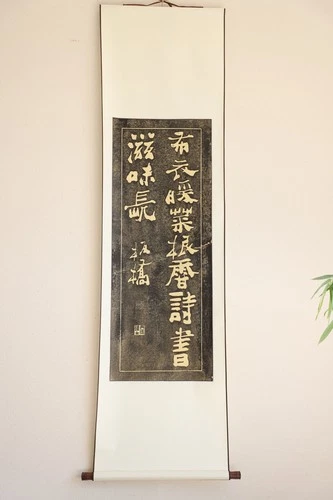 布衣暖菜根香詩書
滋味長
板橋